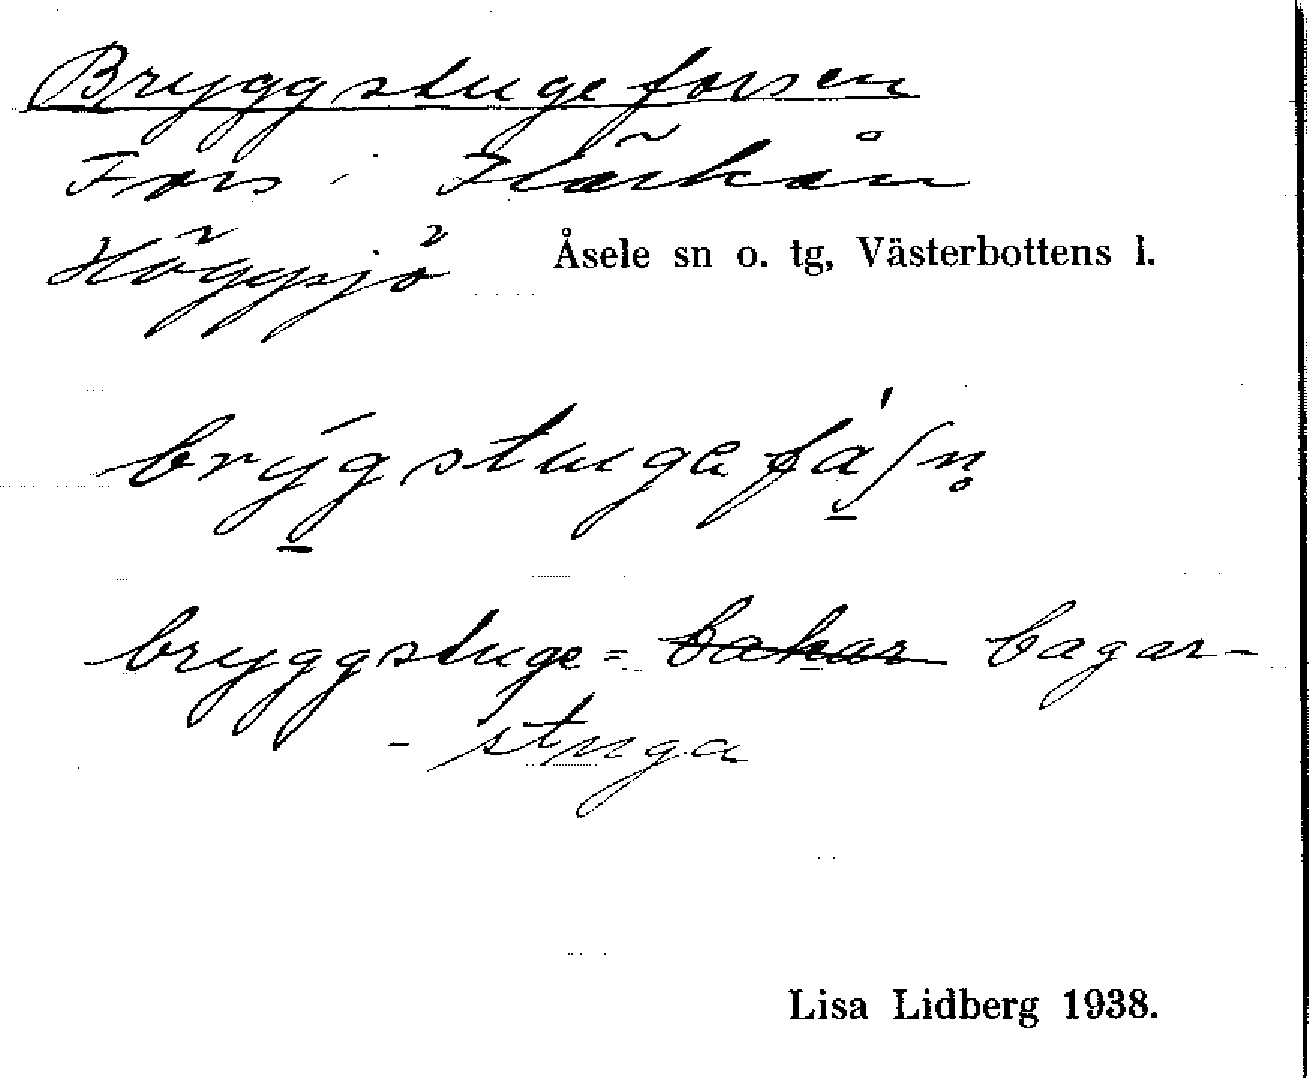 Bryggstugeforsen
Fors i Flärkån
Höggsjö Åsele sn o. tg, Västerbottens l.
brýgstugafá̱ʃn̥
bryggstuge = ~~bakar~~ bagar-
- stuga
Lisa Lidberg 1938.